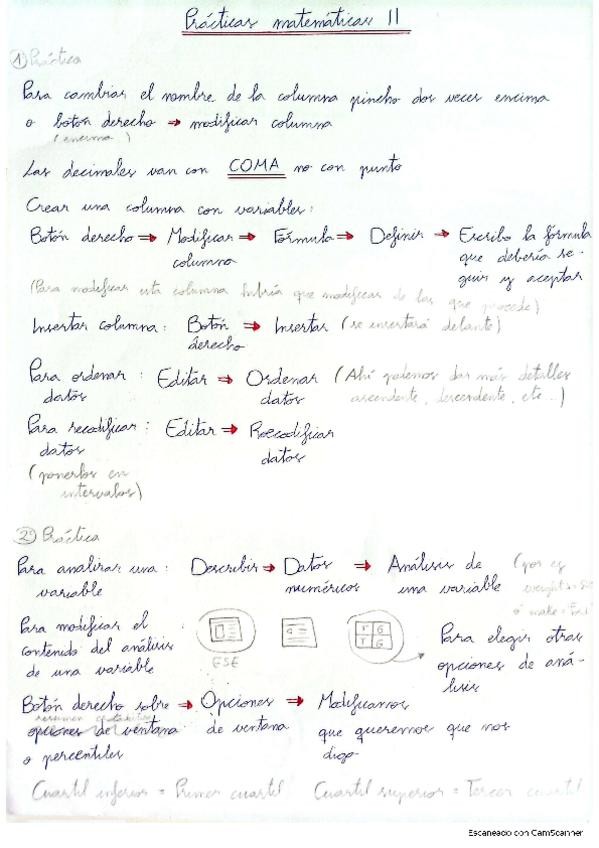 Prácticas matemáticas II
1) Práctica
Para cambiar el nombre de la columna pincho dos veces encima
o botón derecho → modificar columna
(encima)
Los decimales van con COMA no con punto
Crear una columna con variables:
Botón derecho → Modificar columna → Fórmula → Definir → Escribo la fórmula que debería seguir y aceptar
(Para modificar esta columna habría que modificar de las que procede)
Insertar columna: Botón derecho → Insertar (se insertará delante)
Para ordenar datos: Editar → Ordenar datos (Ahí podemos dar más detalles ascendente, descendente, etc...)
Para recodificar datos: Editar → Recodificar datos
(ponerlos en intervalos)
2) Práctica
Para analizar una variable: Describir → Datos numéricos → Análisis de una variable (por ej
Para modificar el contenido del análisis de una variable
ESE
T G
T G
Para elegir otras opciones de análisis
Botón derecho sobre opciones de ventana o percentiles → Opciones de ventana → Modificamos que queremos que nos diga
resumen estadístico
Cuartil inferior = Primer cuartil Cuartil superior = Tercer cuartil
Escaneado con CamScanner